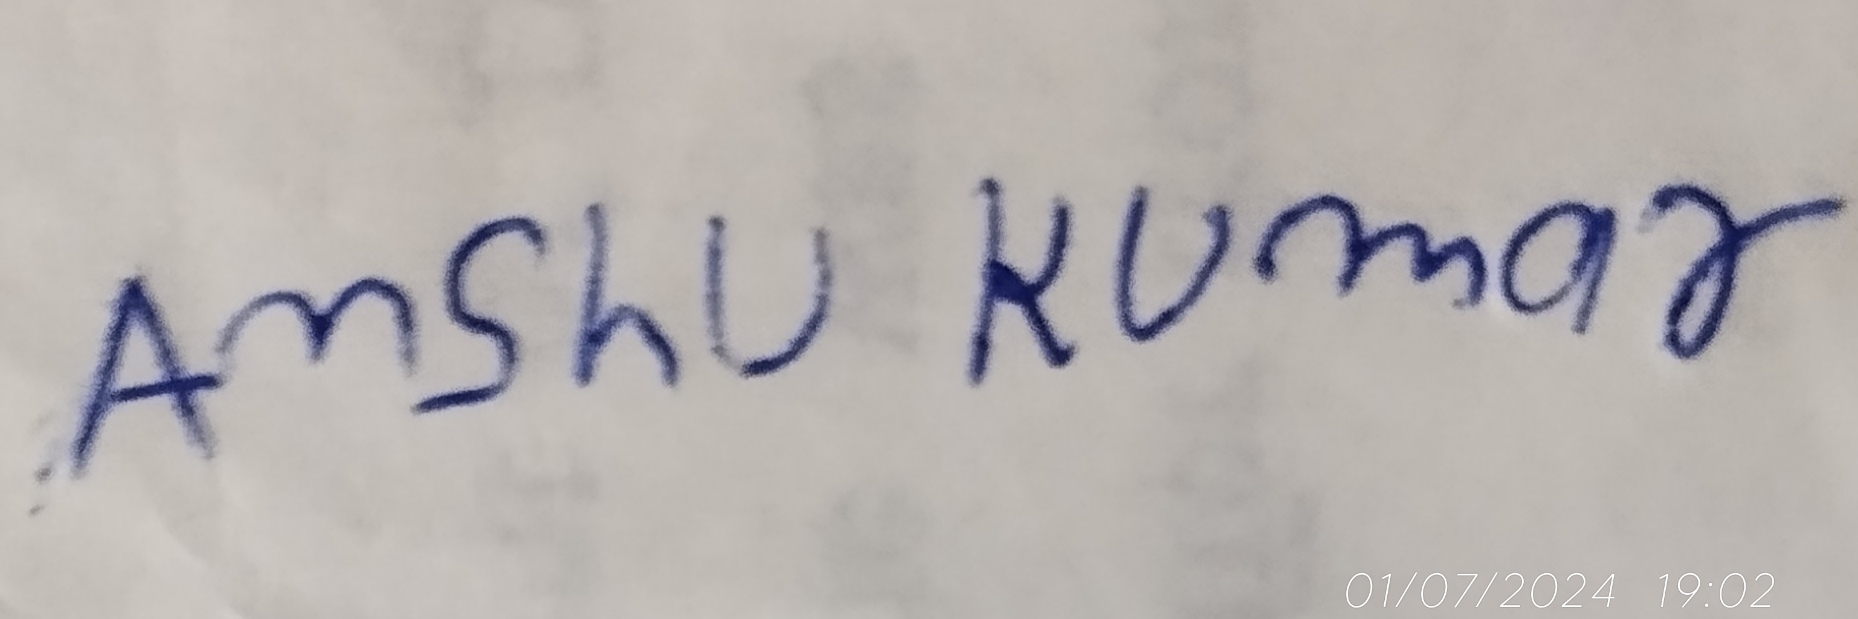 Anshu Kumar
01/07/2024 19:02